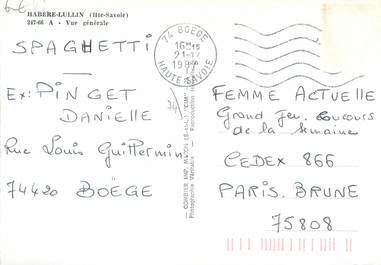 HABERE-LULLIN (Hte-Savoie)
247-66 A - Vue générale
SPAGHETTI
Ex: PINGET
DANIELLE
Rue Louis Guittermin
74420 BOËGE
74 BOEGE
16H15
21-
19
HAUTE-SAVOIE
74
COMBIER IMP. MACON (S.-et-L.) "CIM"
Photographie Véritable - Reproduction
FEMME ACTUELLE
Grand Jeu. Concours
de la Semaine
CEDEX 866
PARIS. BRUNE
75808